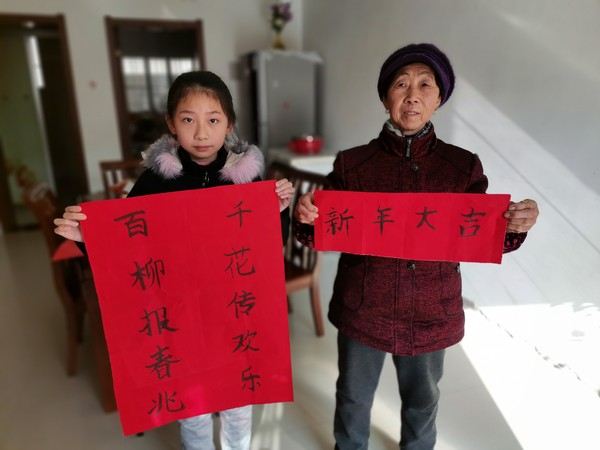 千花传欢乐
百柳报春兆
新年大吉